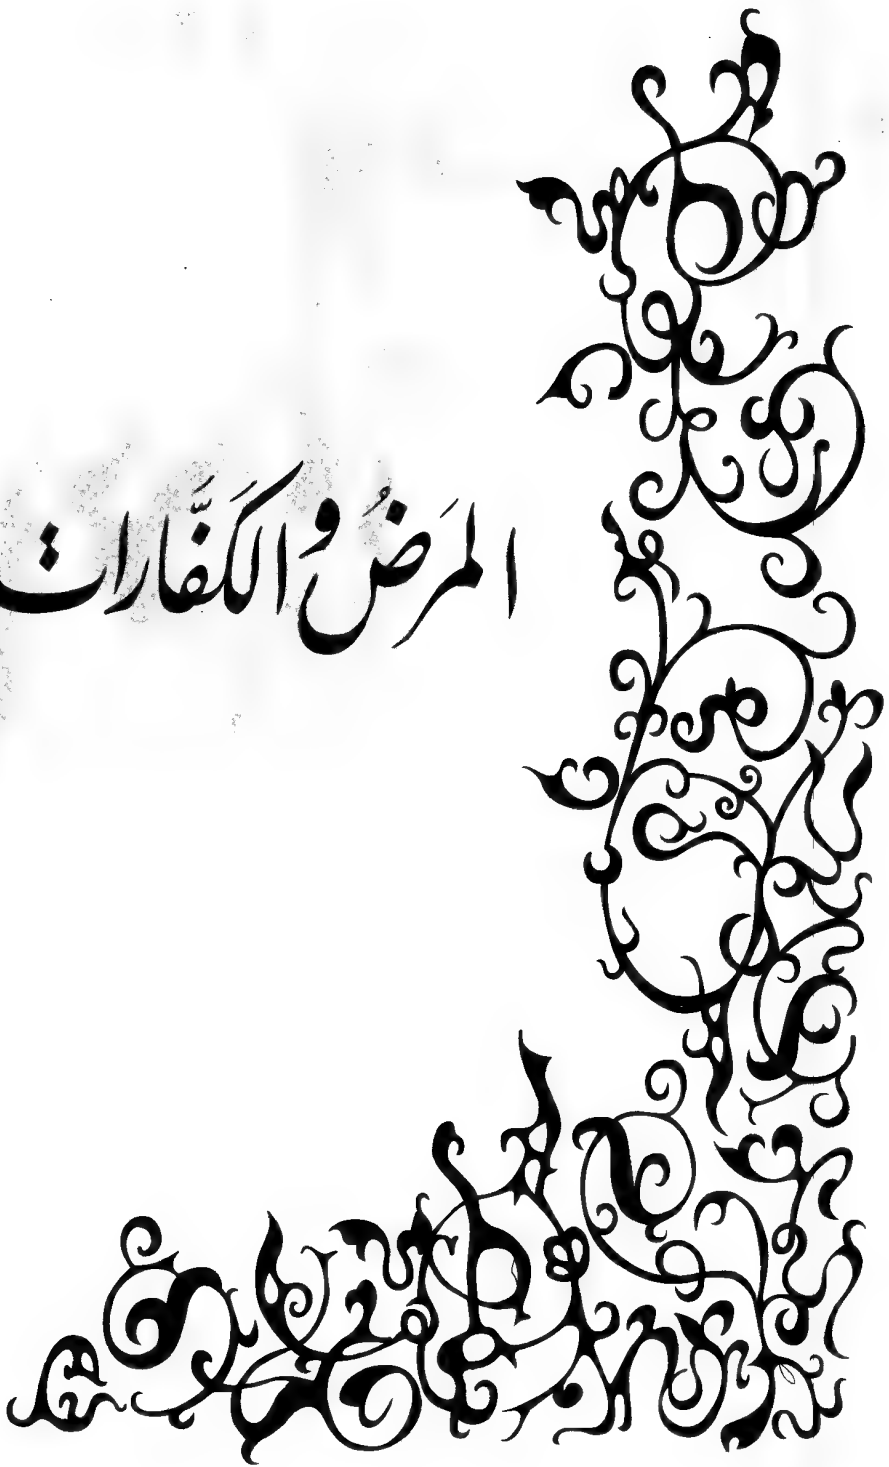 المَرضُ وَالكَفَّارات